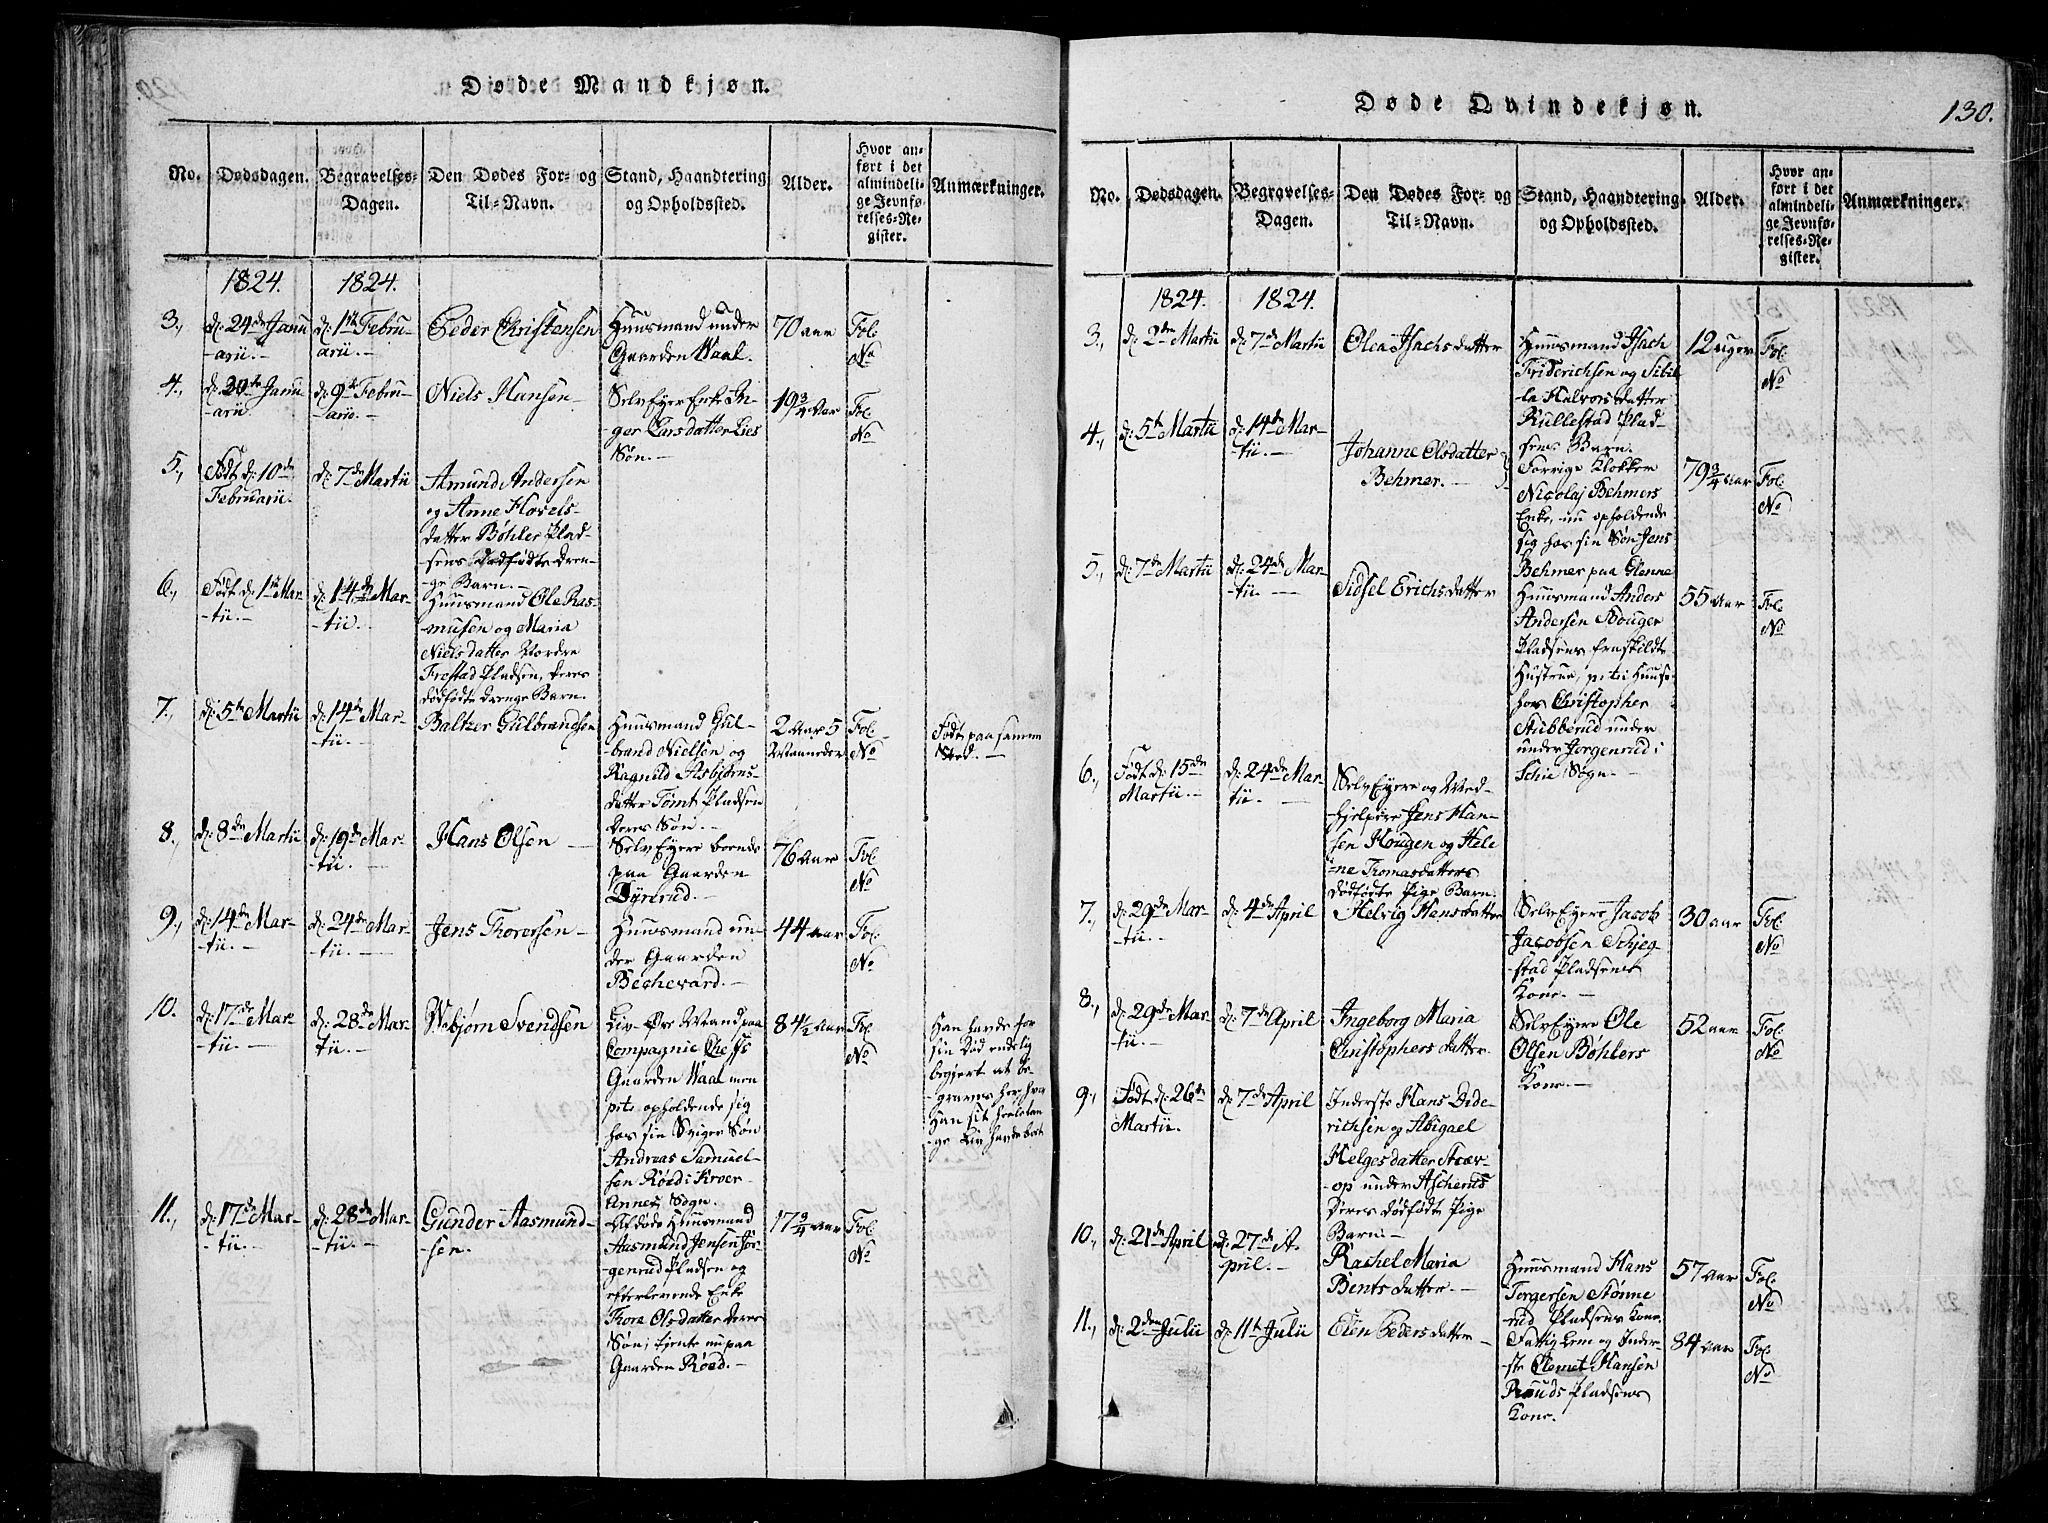 Døde Mandkjøn.
No.
Dødsdagen.
Begravelses-
Dagen.
Den Dødes For- og
Til-Navn.
Stand, Haandtering
og Opholdssted.
Alder.
Hvor an-
ført i det
almindeli-
ge Jevnfø-
relses-Re-
gister.
Anmærkninger.
1824.
1824.
3.,
d: 24de Janu
-arii.-
d: 1ste Febru-
arii.-
Peder Christensen
Huusmand under
Gaarden Waal.
70 aar
Fol:
No
4.,
d: 30te Janu
-arii.
d: 9de Febru-
-arii.
Niels Hansen
SelvEyer Enke In-
-ger Larsdatter Lies
Søn.-
19¾ Aar
Fol:
No
5.,
Født d: 10de
Februarii.
d: 7de Martii
Amund Andersen
og Anne Hovels-
datter Bøhler Plad-
sens Dødfødte Dren-
ge Barn.-
6.,
Født d: 1ste Mar
-tii.-
d: 14de Mar-
-tii.-
Huusmand Ole Ras-
musen og Maria
Nielsdatter Nordre
Frestad Pladsen, deres
dødfødte Drenge Barn.
7.,
d: 5te Martii
d: 14de Mar-
-tii.-
Baltzer Gulbrandsen
Huusmand Gul-
brand Nielsen og
Ragnild Asbjørns-
datter Tømt Pladsen
Deres Søn.-
2 Aar 5
Maaneder
Fol:
No
Født paa samme
Sted.-
8.
d: 8de Martii
d: 19de Mar-
-tii.-
Hans Olsen
SelvEyere boende
paa Gaarden
Dyrerud.
76 Aar
Fol:
No
9.,
d: 14de Mar-
-tii.-
d: 24de Mar-
-tii.-
Jens Thorersen
Huusmand un-
der Gaarden
Bechevard.-
44 aar
Fol:
No
10.
d: 17de Mar-
tii.-
d: 28de Mar-
tii.-
Webjørn Svendsen
Liv-Øre Mand paa
Compagnie Chefs
Gaarden Waal men
opholdende sig
hos sin Sviger Søn
Andreas Samuel-
sen Røed i Kroer
Annex Sogn.
84½ Aar
Fol:
No
Han havde for
sin Død endelig
begjert at be-
-graves her, hvor
Han sit heele lan
-ge Liv havde boet
11.,
d: 17de Mar-
-tii.-
d: 28de Mar-
-tii.-
Gunder Aasmund-
sen.
Afdøde Huusmand
Aasmund Jensen Jør-
-genrud Pladsen og
efterlevende Enke
Thore Olsdatter Deres
Søn, tjente nu paa
Gaarden Røed.-
17¾ aar
Fol:
No
Døde Qvindekjøn.
130.
No.
Dødsdagen.
Begravelses-
Dagen.
Den Dødes For- og
Til-Navn.
Stand, Haandtering
og Opholdssted.
Alder.
Hvor an-
ført i det
almindeli-
ge Jevnfø-
relses-Re-
gister.
Anmærkninger.
1824.
1824.
3.,
d: 2den Martii
d: 7de Martii
Olea Isachsdatter
Huusmand Isach
Friderichsen og Sibil
la Halvorsdatter
Rullestad Plad-
sens Barn.
12 uger
Fol:
No
4.,
d: 5te Martii
d: 14de Mar-
-tii.-
Johanne Olsdatter
Behmer.-
Forrige Klokker
Nicolaj Behmers
Enke, nu opholdende
sig hos sin Søn Jens
Behmer paa Glenne
79¾ aar
Fol:
No
5.,
d: 7de Martii
d: 24de Mar-
-tii.-
Sidsel Erichsdatter
Huusmand Anders
Andersen Houger
Pladsens fraskildte
Hustrue,
hos Christopher
Stubberud under
under Jorgenrud i
Schie Sogn.-
55 aar
Fol:
No
6.,
Født d: 15de
Martii.-
d: 24de Mar-
tii.-
SelvEyere og Med-
hjelpere Jens Han-
sen Hougen og Hele
-ne Tromasdatters
dødfødte Pige Barn.
7.,
d: 29de Mar-
-tii.-
d: 4de April
Helvig Hansdatter
SelvEyere Jacob
Jacobsen Schjeg-
-stad Pladsens
Kone.-
30 aar
Fol:
No
8.,
d: 29de Mar-
tii.
d: 7de April
Ingeborg Maria
Christophersdatter
SelvEyere Ole
Olsen Bøhlers
Kone.-
52 aar
Fol:
No
9.,
Født d: 26de
Martii.
d: 7de April
Inderste Hans Dide-
richsen og Abigael
Helgesdatter Stær-
-op under Ascherud
Deres dødfødte Pige
Barn.-
10.,
d: 21de April
d: 27de A-
pril.-
Rachel Maria
Bentsdatter.-
Huusmand Hans
Torgersen Stønne
rud Pladsens Kone.
57 aar
Fol:
No
11.,
d: 2den Julii
d: 11te Julii
Elen Pedersdatter
FattigLem og Inder-
-ste Clemet Hansen
Pladsens
Kone.
84 aar
Fol:
No